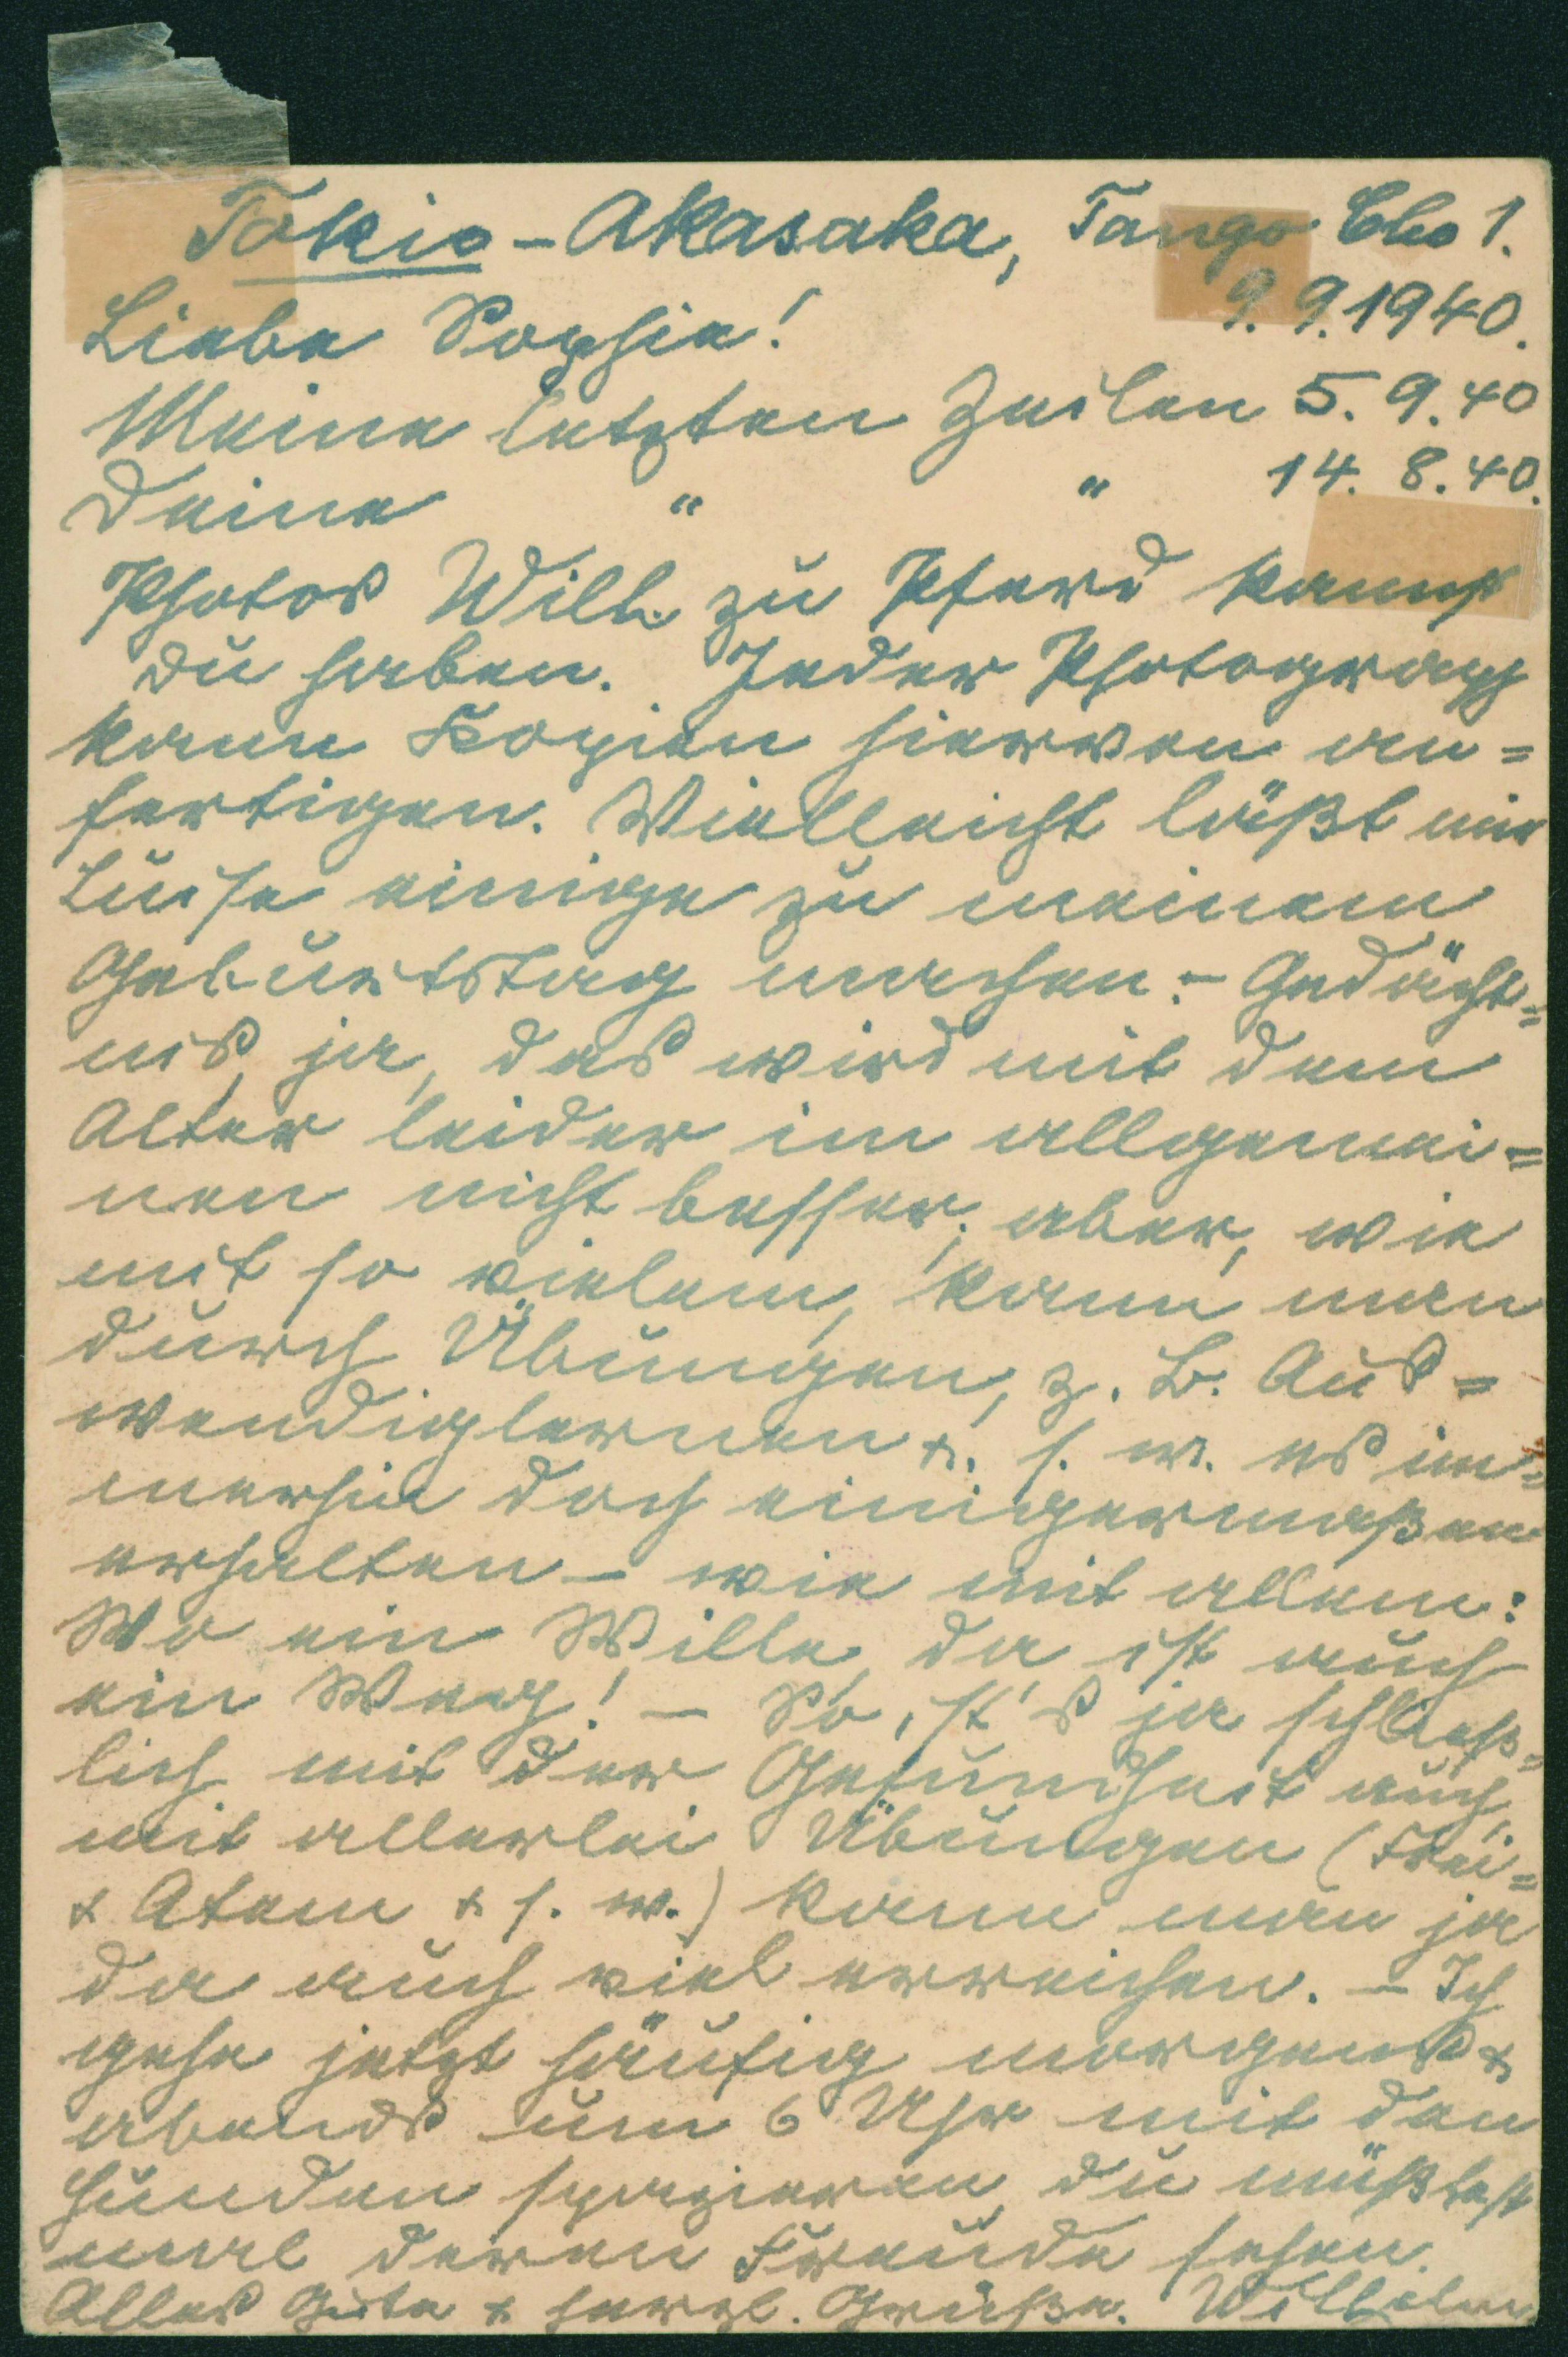 Tokio - Akasaka, Tango Cho 1.
9. 9. 1940.
Liebe Sophie!
Meine letzten Zeilen 5. 9. 40
Deine " " 14. 8. 40.
Photos Will. zu Pferd kannst
Du haben. Jeder Photograph
kann Kopien hiervon an=
fertigen. Vielleicht läßt mir
Luise einige zu meinem
Geburtstag machen. - Gedächt=
nis, ja, das wird mit dem
Alter leider im allgemei=
nen nicht besser; aber, wie
mit so vielem, kann man
durch Übungen, z. B. Aus=
wendiglernen u. s. w. es im=
merhin doch einigermaßen
erhalten - wie mit allem:
Wo ein Wille, da ist auch
ein Weg! - So ist's ja schließ=
lich mit der Gesundheit auch,
mit allerlei Übungen (Frei=
& Atem & s. w.) kann man ja
da auch viel erreichen. - Ich
gehe jetzt häufig morgens &
abends um 6 Uhr mit den
Hunden spazieren, Du müßtest
mal deren Freude sehen.
Alles Gute & herzl. Grüße. Wilhelm